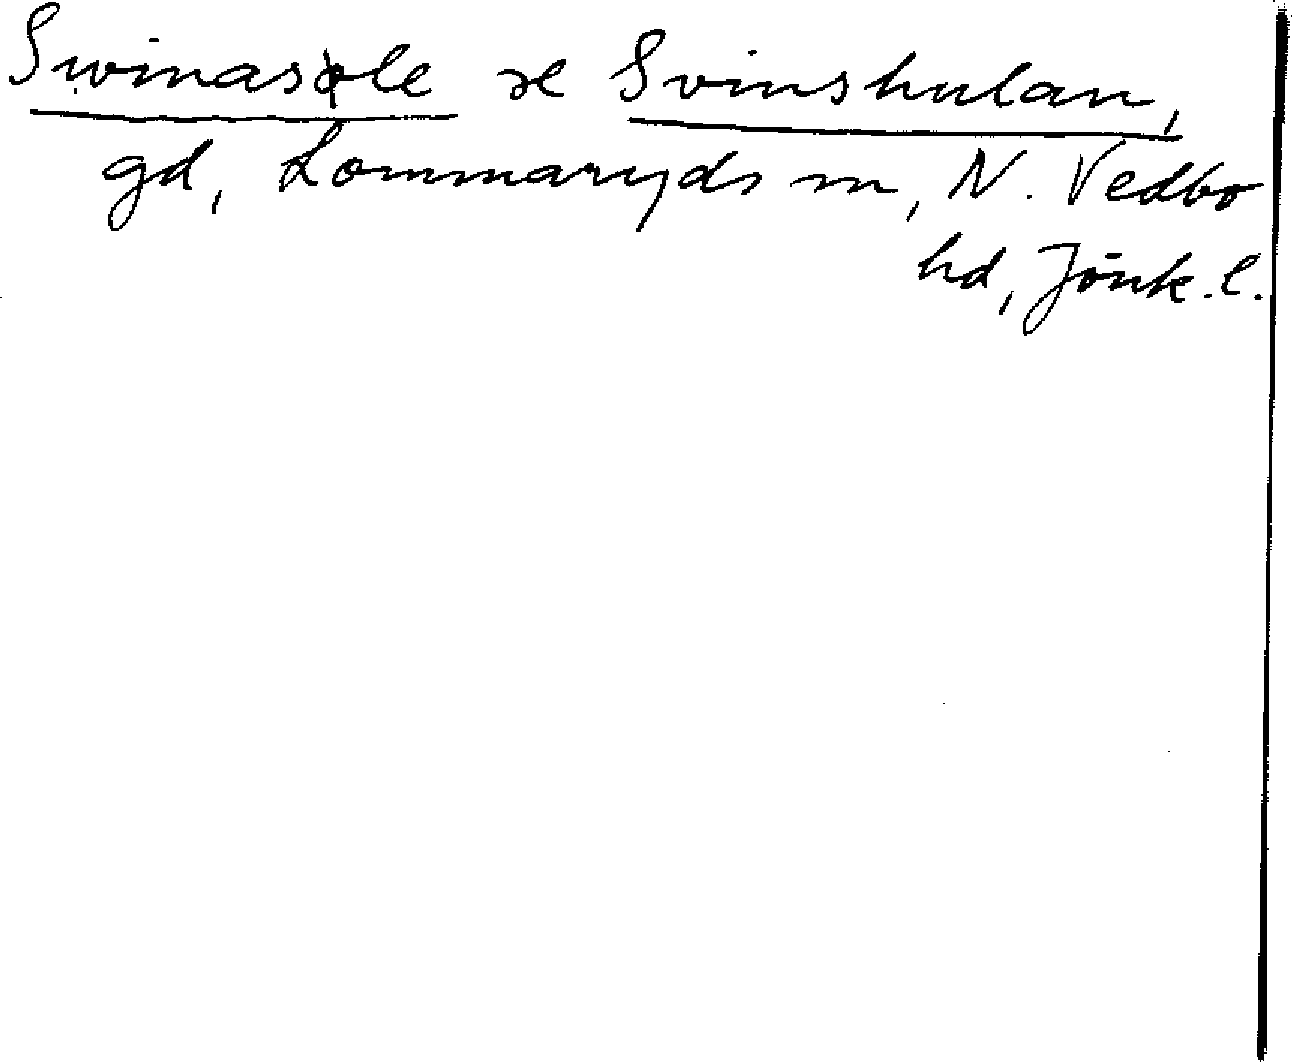 Swinasøle se Svinshulan,
gd, Lommaryds sn, N. Vedbo
hd, Jönk. l.